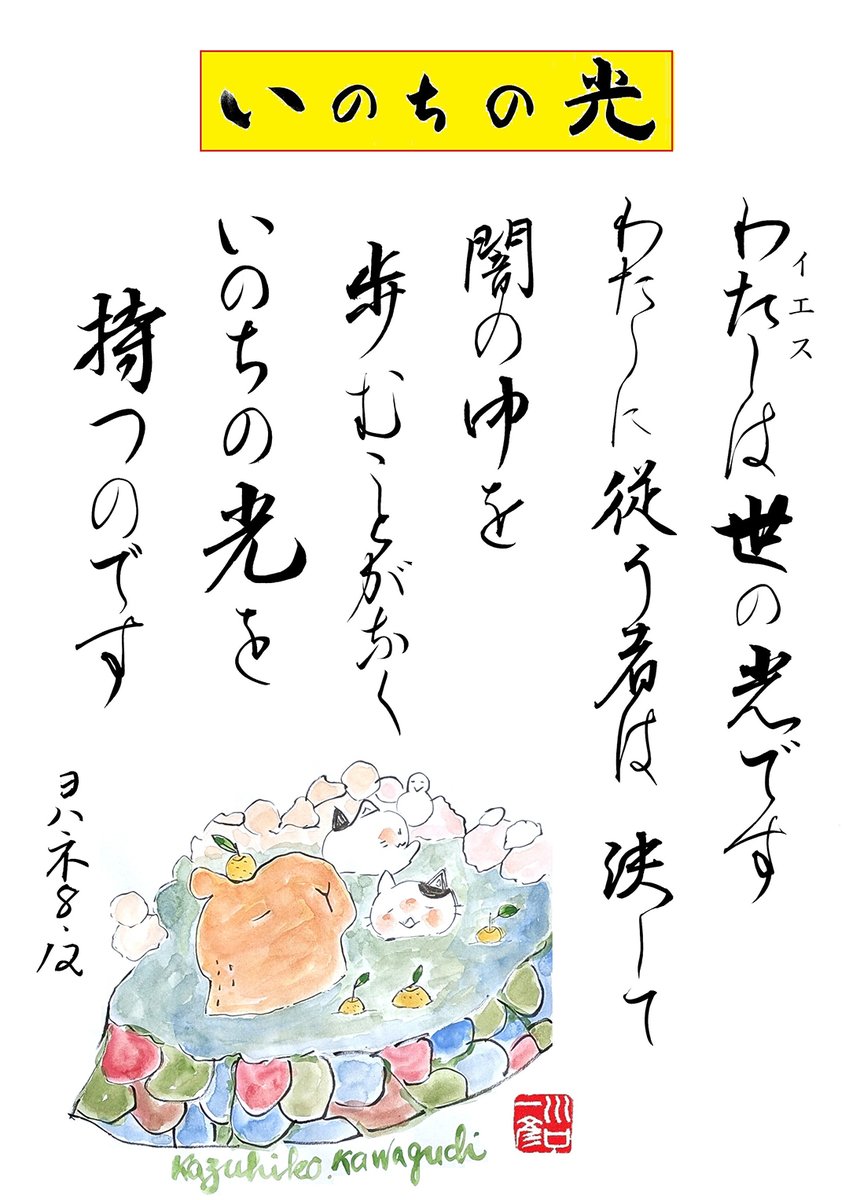 いのちの光
わたしは世の光です
イエス
わたしに従う者は 決して
闇の中を
歩むことがなく
いのちの光を
持つのです
ヨハネ8.12
Kazuhiko.Kawaguchi
川口
一彦